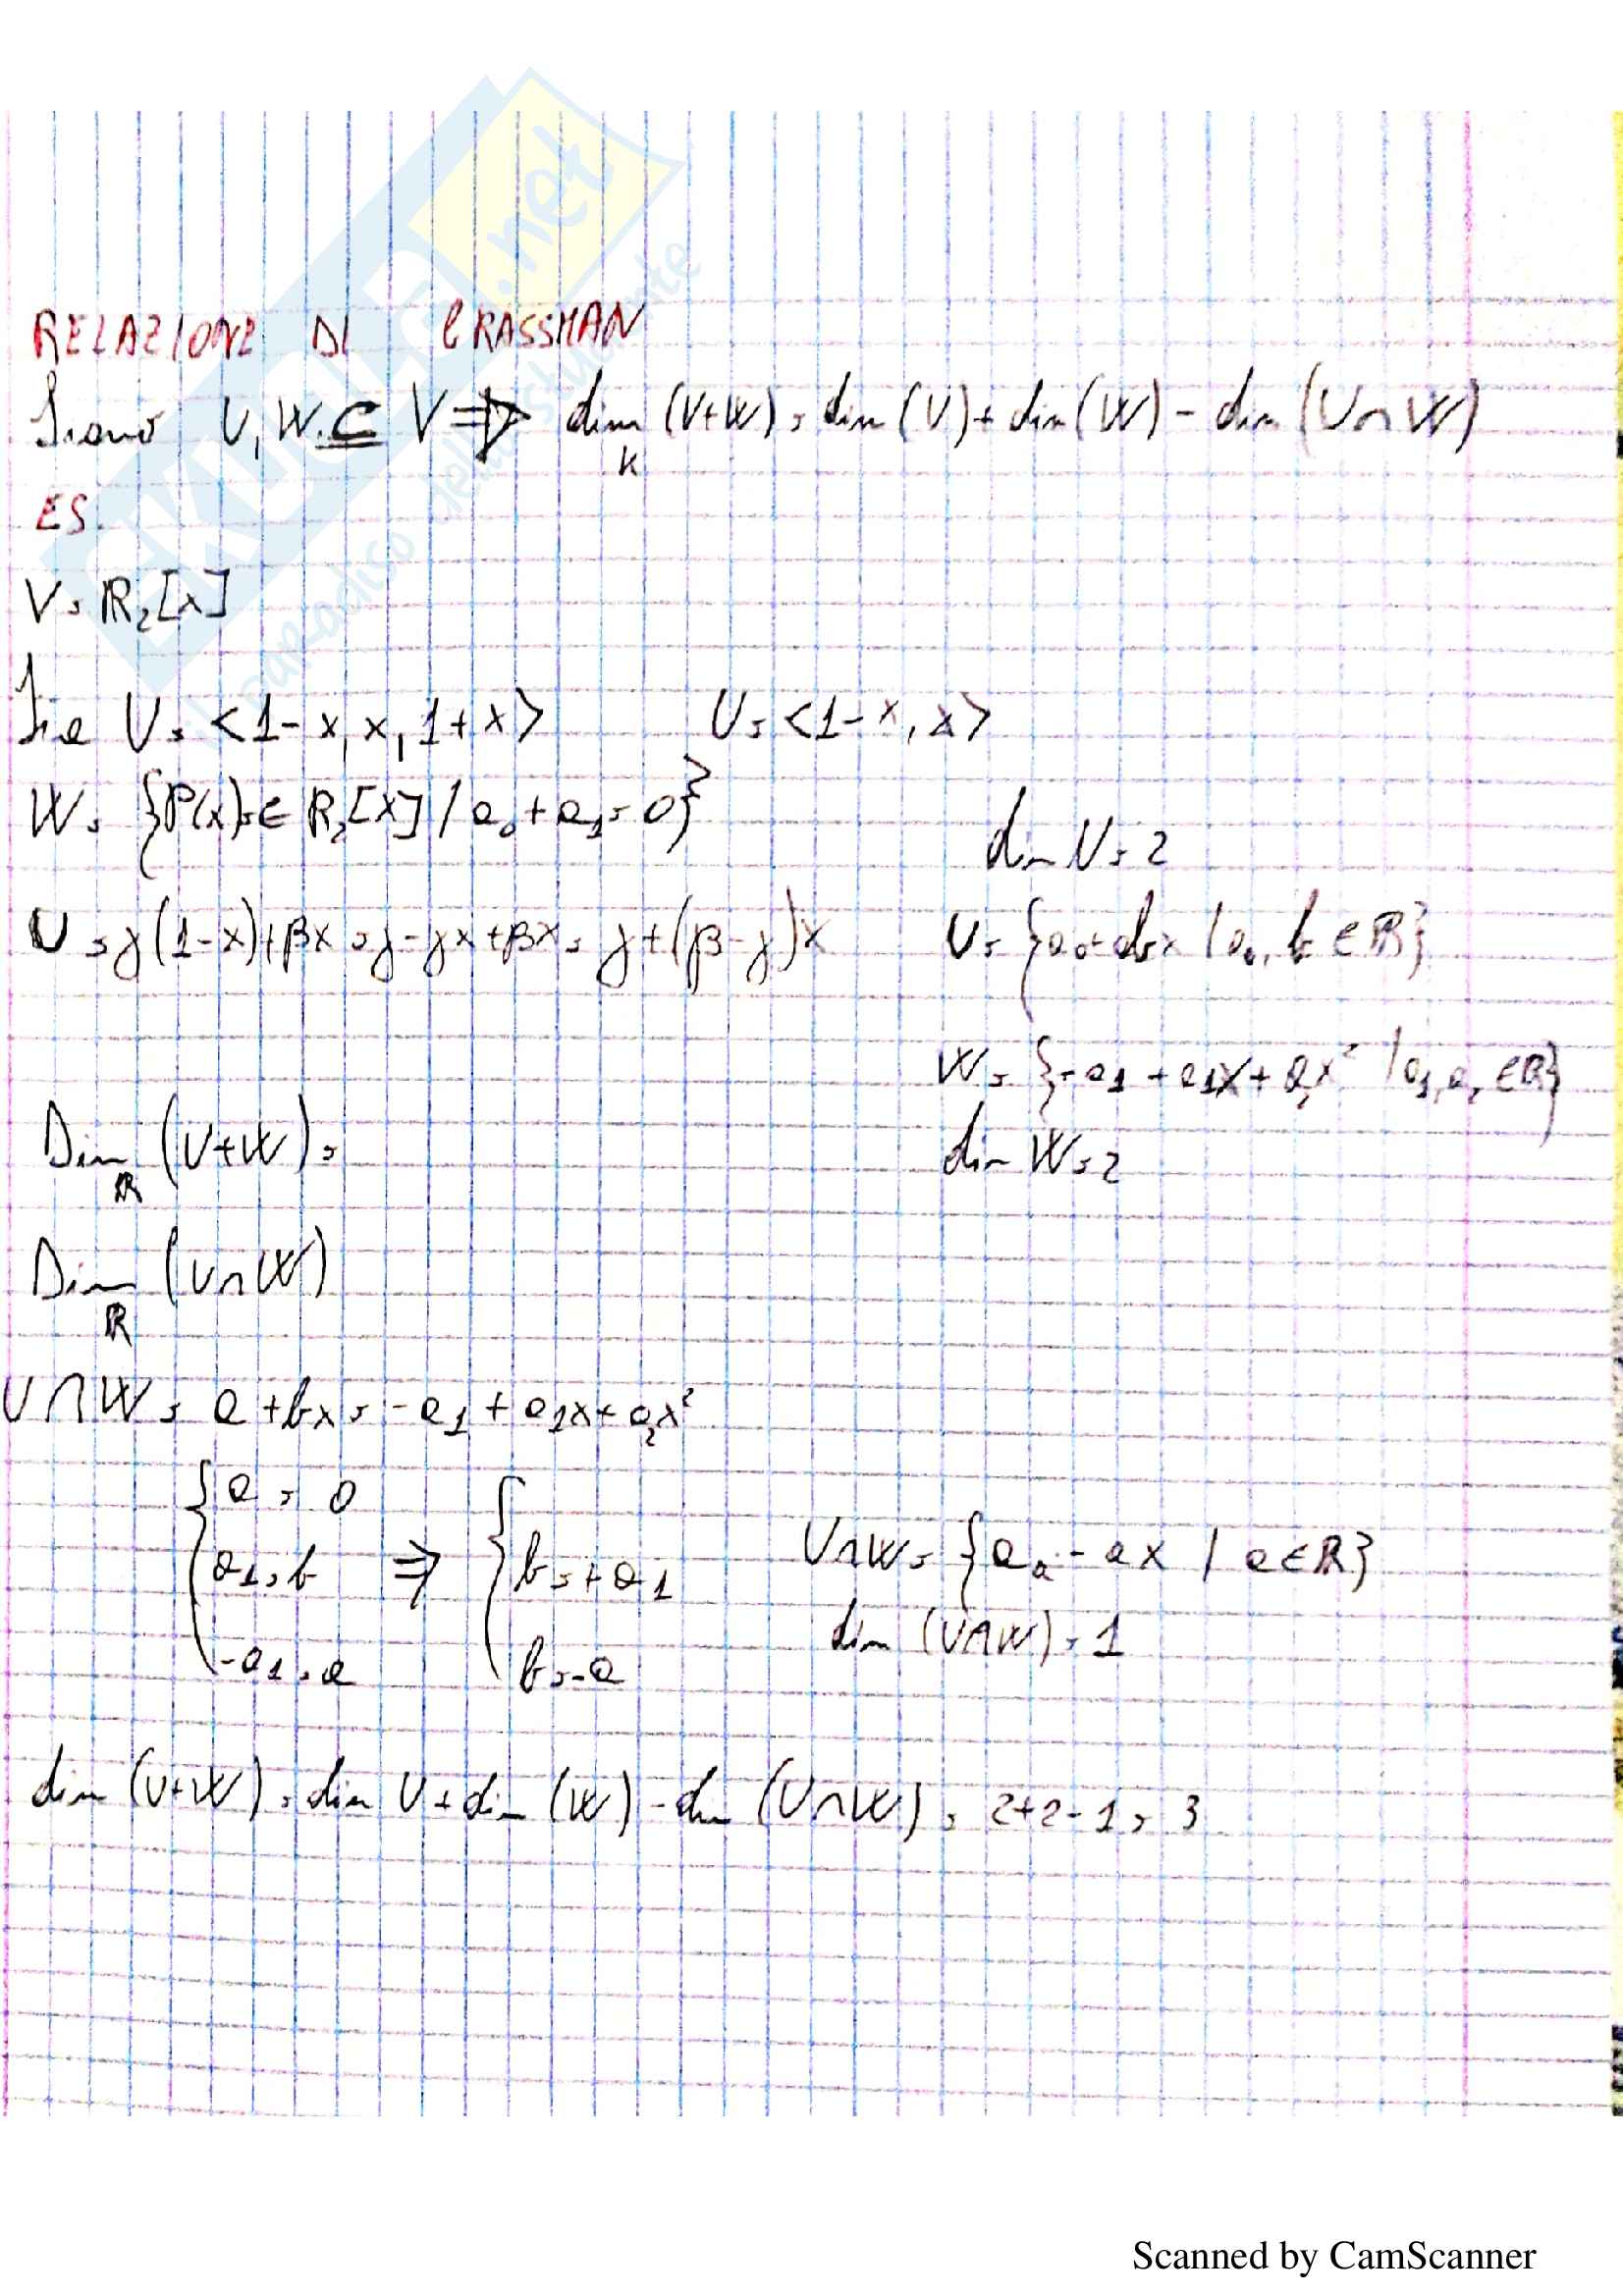 RELAZIONE DI GRASSMAN
Siano U, W ⊆ V ⇒ dim_K (U+W) = dim (U) + dim (W) - dim (U∩W)
ES.
V = ℝ₂[x]
Sia U = <1-x, x, 1+x> U = <1-x, x>
W = {P(x) ∈ ℝ₂[x] / a₀ + a₁ = 0}
dim U = 2
U = γ(1-x)+βx = γ-γx+βx = γ+(β-γ)x U = {a₀ + bx / a₀, b ∈ ℝ}
W = {-a₁ + a₁x + a₂x² / a₁, a₂ ∈ ℝ}
Dim_ℝ (U+W) = dim W = 2
Dim_ℝ (U∩W)
U∩W = a + bx = -a₁ + a₁x + a₂x²
{a₂ = 0
a₁ = b ⇒ { b = +a₁ U∩W = {a - ax / a ∈ ℝ}
dim (U∩W) = 1
-a₁ = a b = -a
dim (U+W) = dim U + dim (W) - dim (U∩W) = 2+2-1 = 3
SKUOLA.net
paradiso dello studente
Scanned by CamScanner